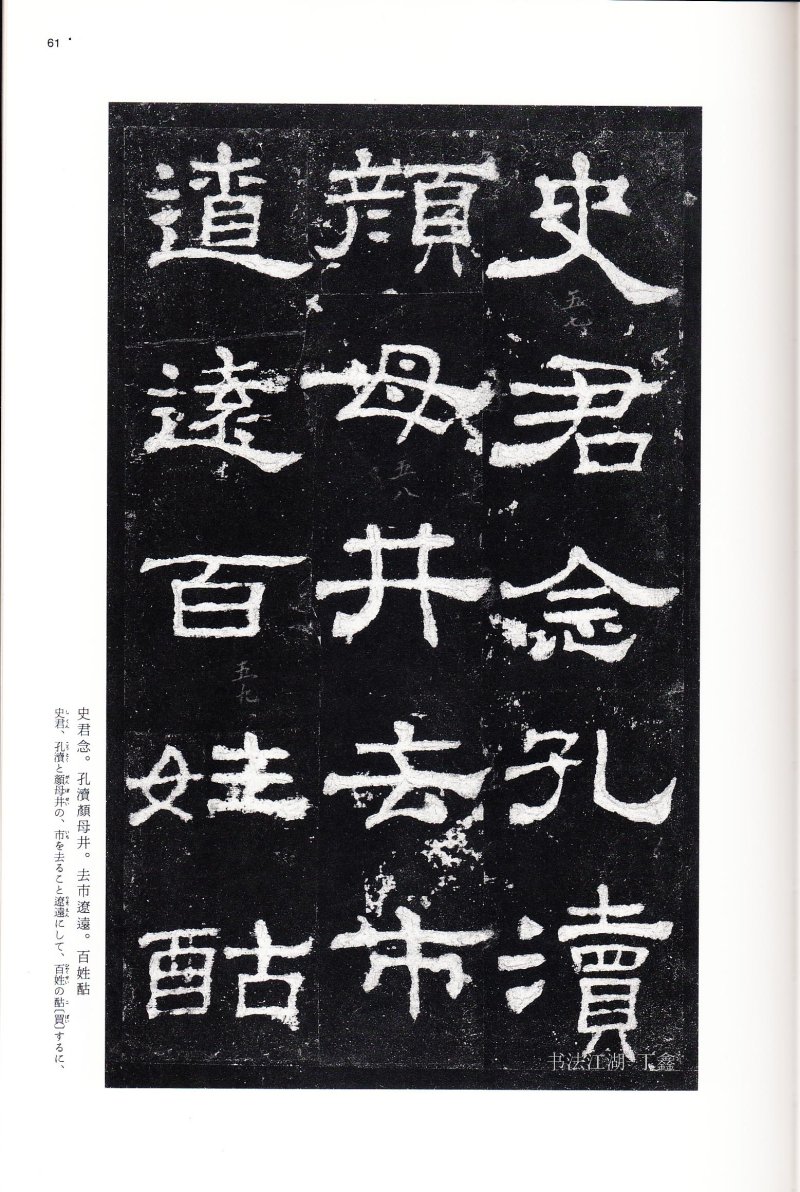 61
史君念孔瀆
顔母井去市
遼遠百姓酤
五七
五八
五九
史君念。孔瀆顏母井。去市遼遠。百姓酤
史君、孔瀆と顏母井の、市を去ること遼遠にして、百姓の酤〔買〕するに、
书法江湖 丁鑫